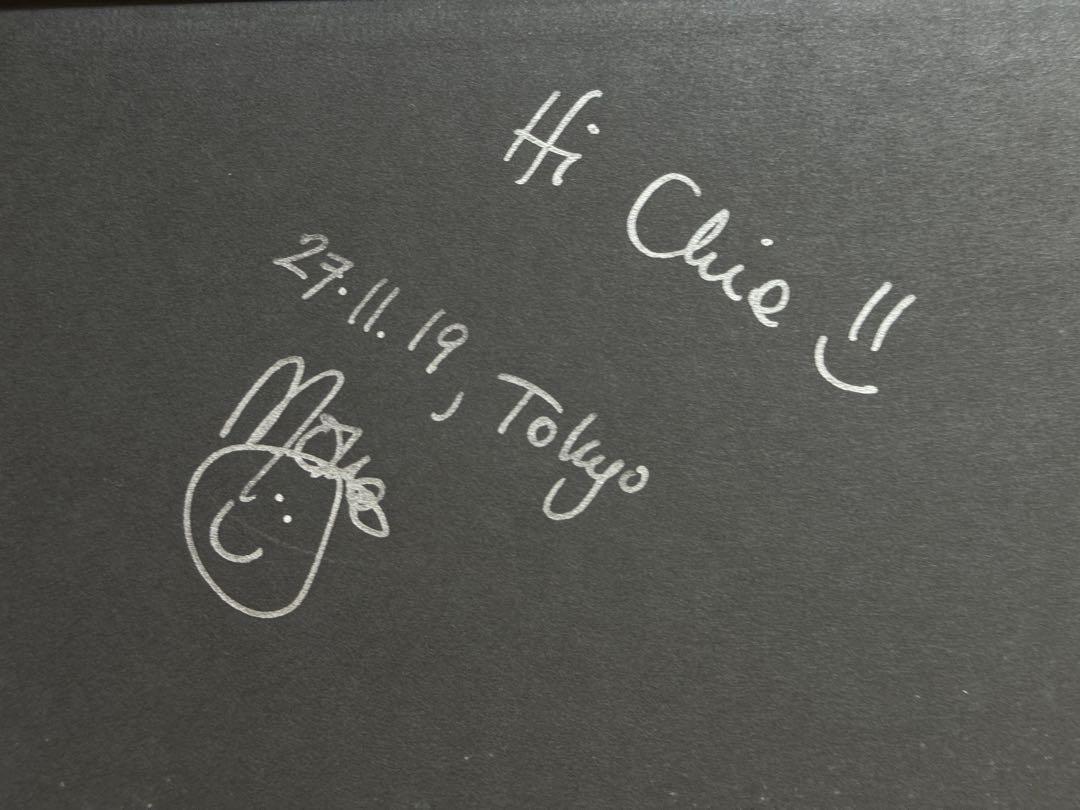 Hi Chie !!
27.11.19, Tokyo